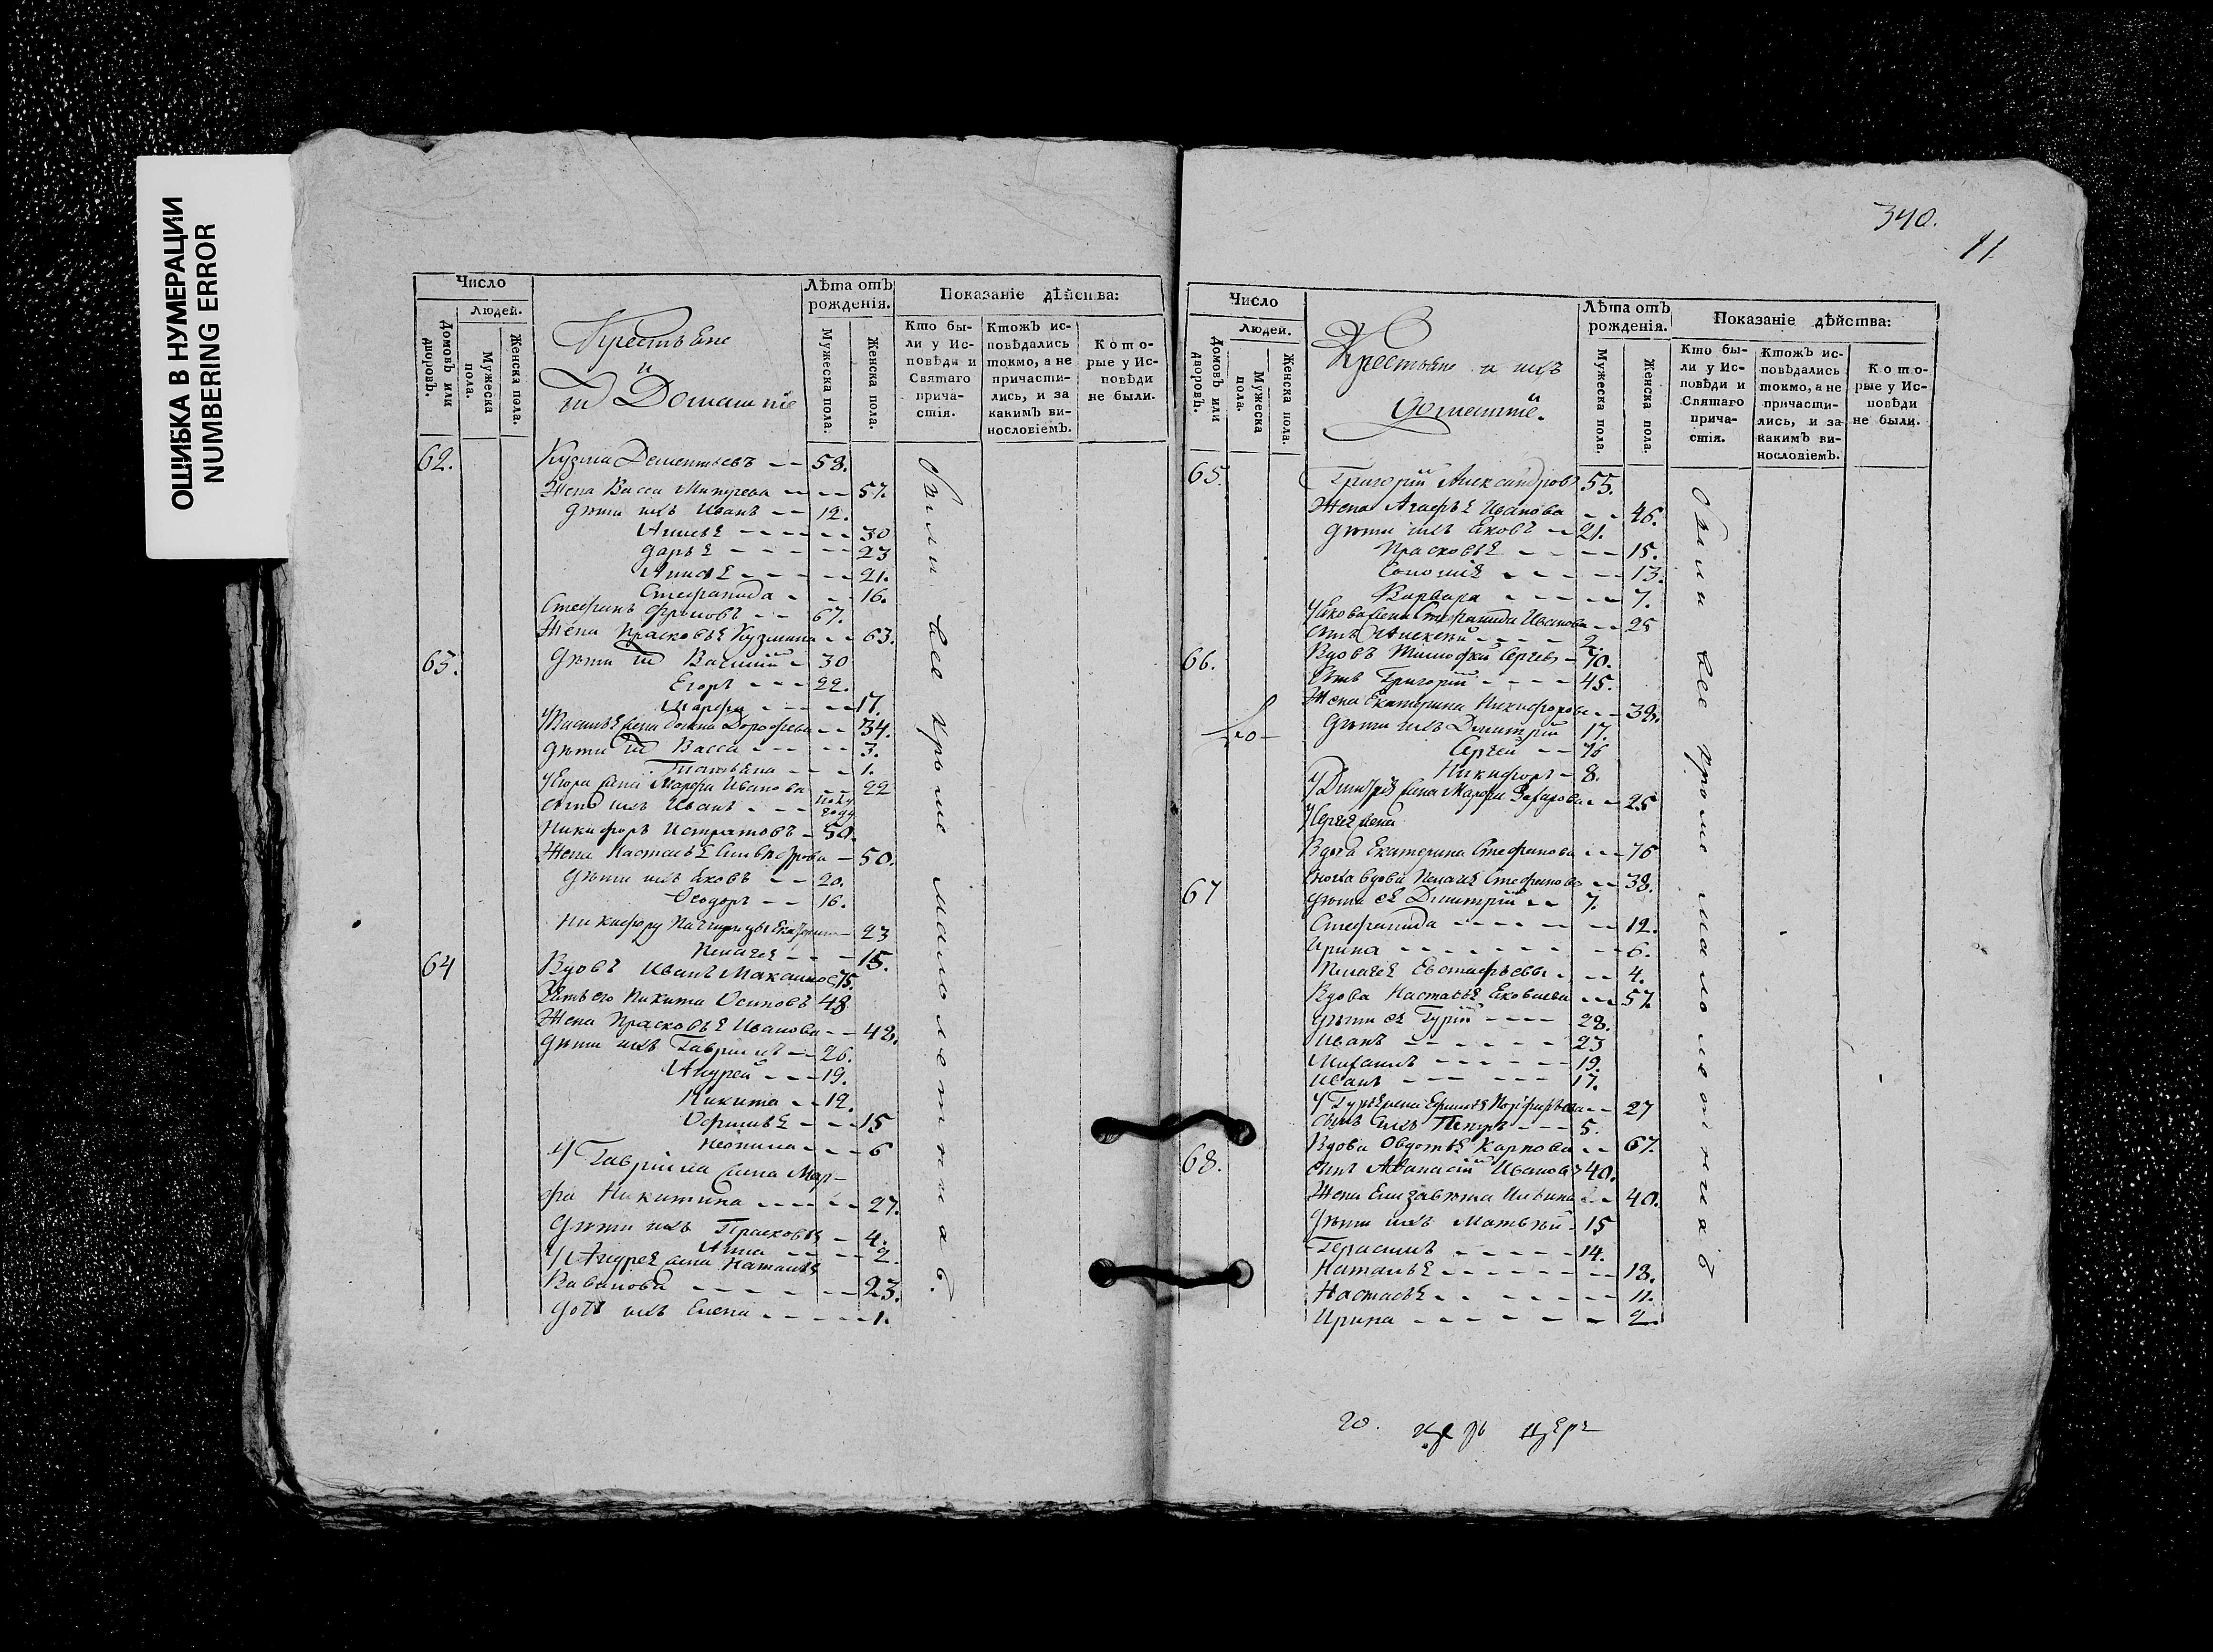 ОШИБКА В НУМЕРАЦИИ
NUMBERING ERROR
Число
Людей.
Домовъ или дворовъ.
Мужеска пола.
Женска пола.
Крестьяне
и
их Домашніе
Лѣта отъ рожденія.
Мужеска пола.
Женска пола.
Показаніе дѣйства:
Кто были у Исповѣди и Святаго причастія.
Ктожъ исповѣдались токмо, а не причастились, и за какимъ винословіемъ.
Которые у Исповѣди не были.
62. Кузма Дементьевъ 58.
Жена Васса 57.
дѣти ихъ Иванъ 12.
30
Дарья 23
21.
Стефанида 16.
Стефанъ 67.
Жена Прасковья Кузмина 63.
63. дѣти их Василий 30
Егоръ 22.
Марфа 17.
жена Дорофеева 34.
дѣти их Васса 3.
Татьяна 1.
У Егора жена Марфа Иванова 22
сынъ ихъ Иванъ полу года
Никифоръ Истратовъ 50.
Жена Настасья 50.
дѣти ихъ Яковъ 20.
Феодоръ 16.
Никифору 23
Пелагея 15.
64 Вдовъ Иванъ Максимовъ 75.
Зять его Никита Осиповъ 48
Жена Прасковья Иванова 48.
дѣти ихъ Гаврилъ 26.
Андрей 19.
Никита 12.
Офимья 15
Неонила 6
У Гаврила жена Мар-
фа Никитина 27.
дѣти ихъ Прасковья 4.
Анна 2.
У Андрея жена Наталья
23.
дочь ихъ Елена 1.
Были все кроме малолетнихъ.
340.
11
Число
Людей.
Домовъ или дворовъ.
Мужеска пола.
Женска пола.
Крестьяне и ихъ
домашніе.
Лѣта отъ рожденія.
Мужеска пола.
Женска пола.
Показаніе дѣйства:
Кто были у Исповѣди и Святаго причастія.
Ктожъ исповѣдались токмо, а не причастились, и за какимъ винословіемъ.
Которые у Исповѣди не были.
65. Григорій Александровъ 55.
Жена Агафья Иванова 46.
дѣти ихъ Яковъ 21.
Прасковья 15.
13.
Варвара 7.
У Якова жена Стефанида Иванова 25
сынъ Алексѣй 2.
66. Вдовъ Тимофей Сергеевъ 70.
сынъ Григорій 45.
Жена Екатерина Никифорова 38.
дѣти ихъ Димитрій 17.
Сергей 16
Никифоръ 8.
У Димитрія жена Марфа Захарова 25
У Сергея жена
Вдова Екатерина Стефанова 76
67 вдова Пелагея Стефанова 38.
дѣти ея Димитрій 7.
Стефанида 12.
Ирина 6.
Пелагея 4.
Вдова Настасья Яковлева 57.
дѣти ея Гурій 28.
Иванъ 23
Михаилъ 19.
Иванъ 17.
У Гурья жена 27
сынъ ихъ Петръ 5.
Вдова Овдотья Карпова 67.
68. сынъ Афанасій Ивановъ 40.
Жена Елизавета Ильина 40.
дѣти ихъ Матвѣй 15
Герасимъ 14.
Наталья 18.
Настасья 11.
Ирина 2.
Были все кроме малолетнихъ